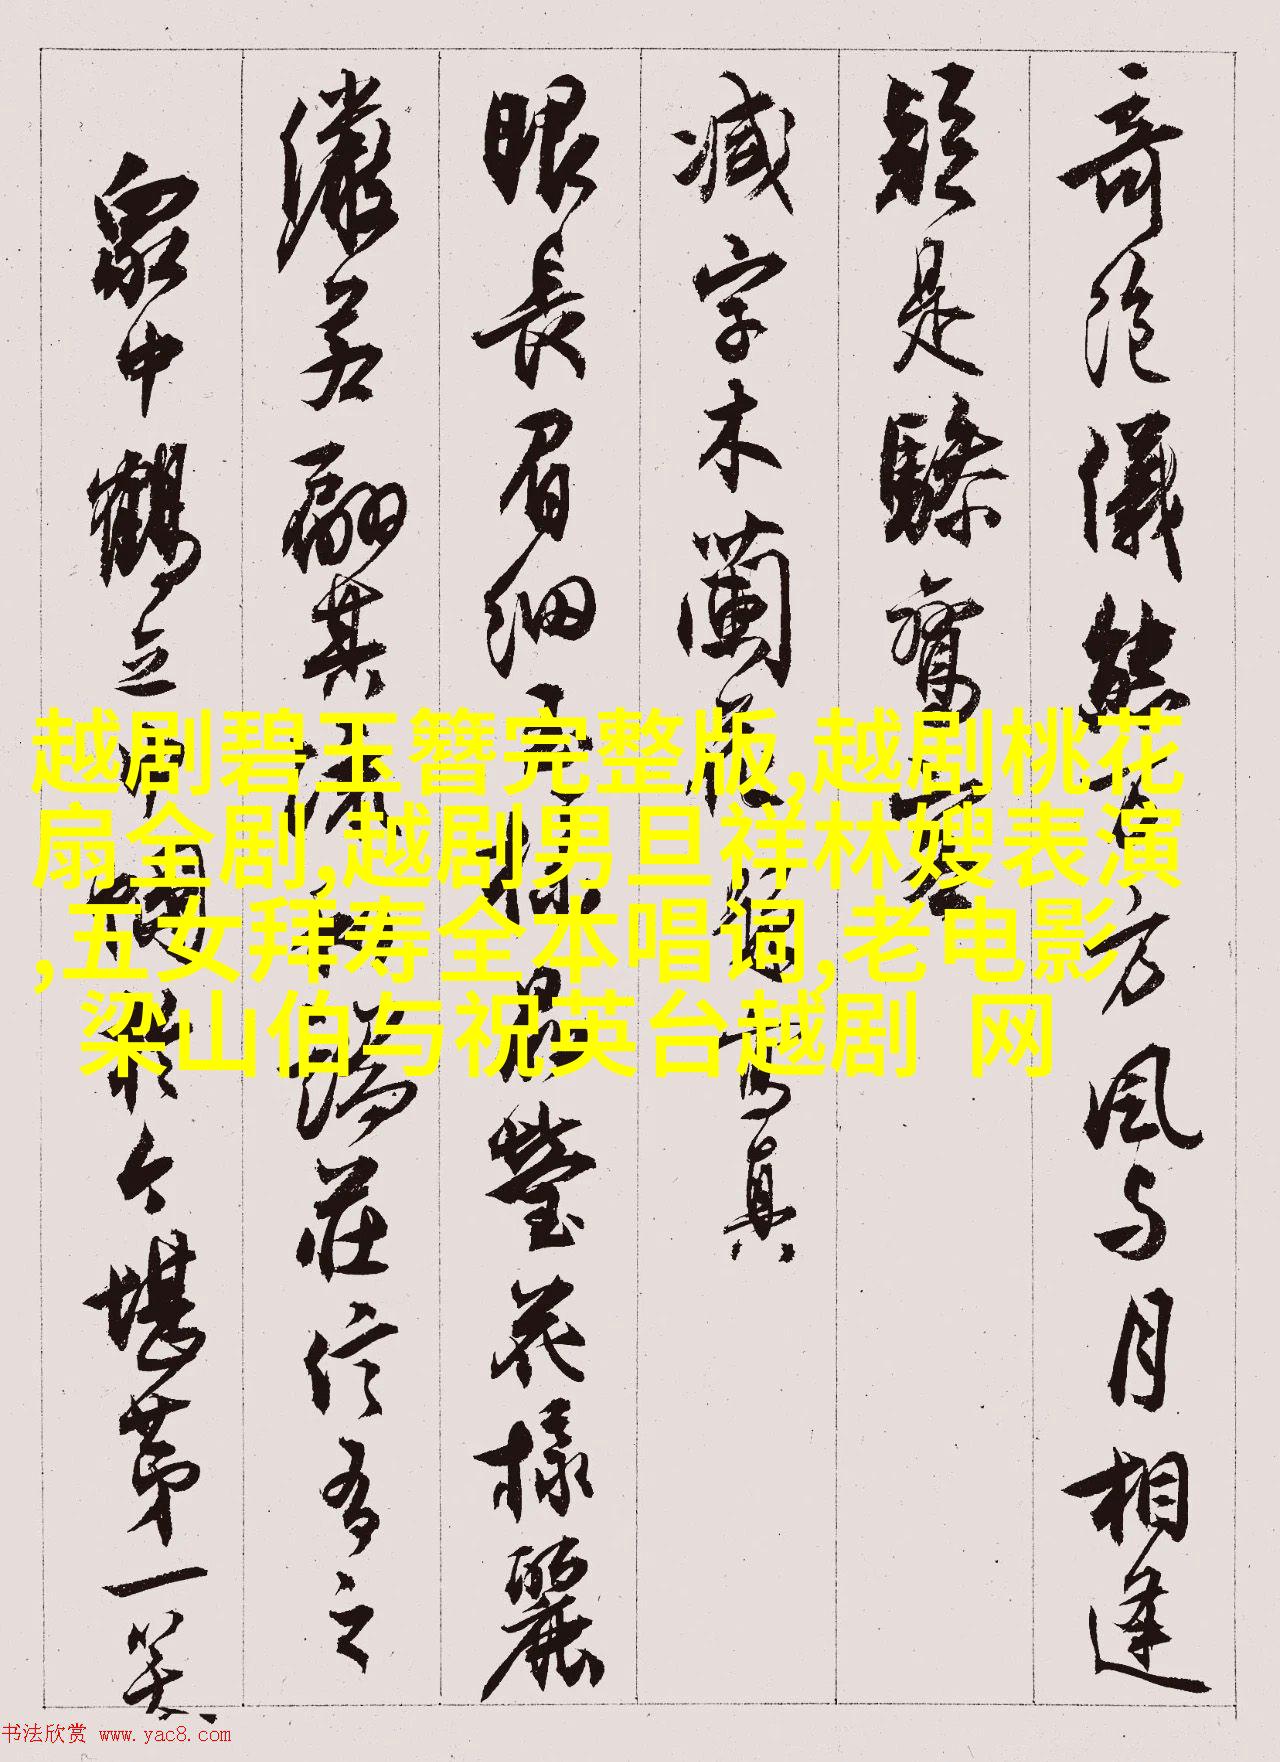 奇花儀態万方風与月相逢
疑是驂鸞
減字木蘭花
寫真
眼長眉細
晶瑩花樣麗
瀟若翩其
端莊信有之
眾中鶴立
今堪第一笑
越剧碧玉簪完整版,越剧桃花
扇全剧,越剧男旦祥林嫂表演
,五女拜寿全本唱词,老电影
梁山伯与祝英台越剧 网
书法欣赏 www.yac8.com